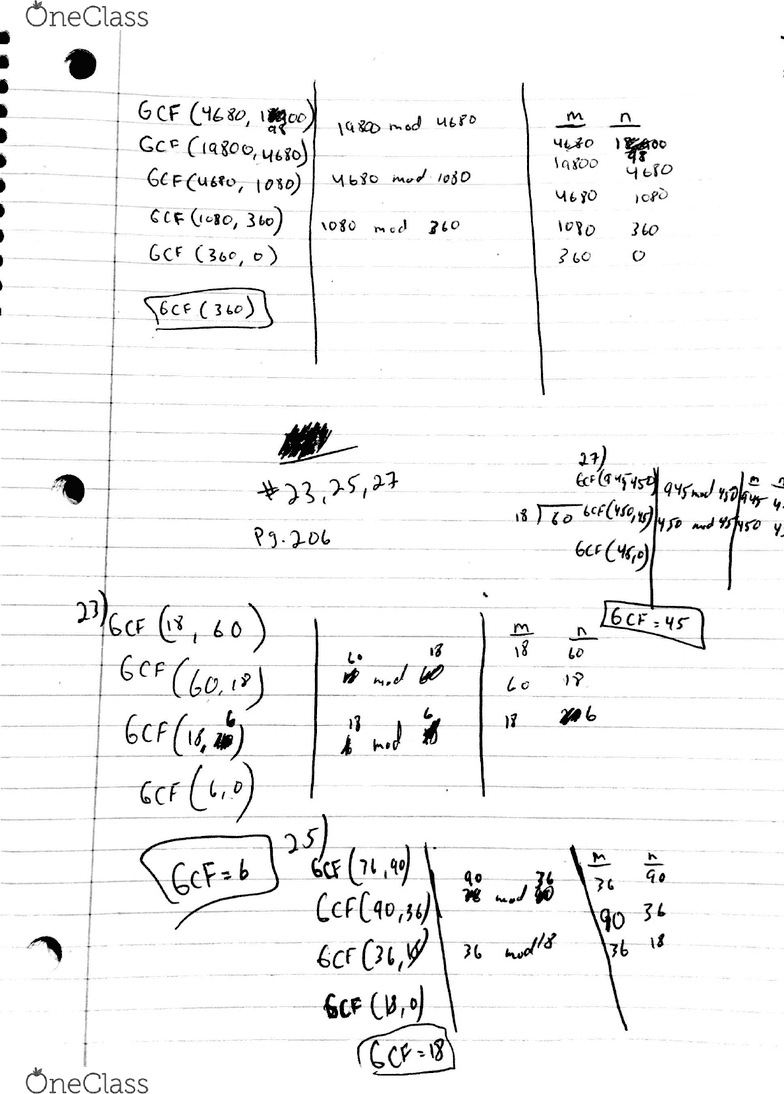 OneClass
GCF (4680, 19800)
98
19800 mod 4680
m n
4680 18900
98
GCF (19800, 4680)
19800 4680
GCF (4680, 1080)
4680 mod 1080
4680 1080
GCF (1080, 360)
1080 mod 360
1080 360
GCF (360, 0)
360 0
GCF (360)
#23, 25, 27
Pg. 206
27)
GCF (945, 450)
945 mod 450
m
945
18 60
GCF (450, 45)
450 mod 45
450
GCF (45, 0)
GCF = 45
23) GCF (18, 60)
m n
18 60
GCF (60, 18)
60 mod 18
60 18
GCF (18, 6)
18 mod 6
18 6
GCF (6, 0)
GCF = 6
25)
GCF (36, 90)
90 mod 36
m n
36 90
GCF (90, 36)
90 36
GCF (36, 18)
36 mod 18
36 18
GCF (18, 0)
GCF = 18
OneClass